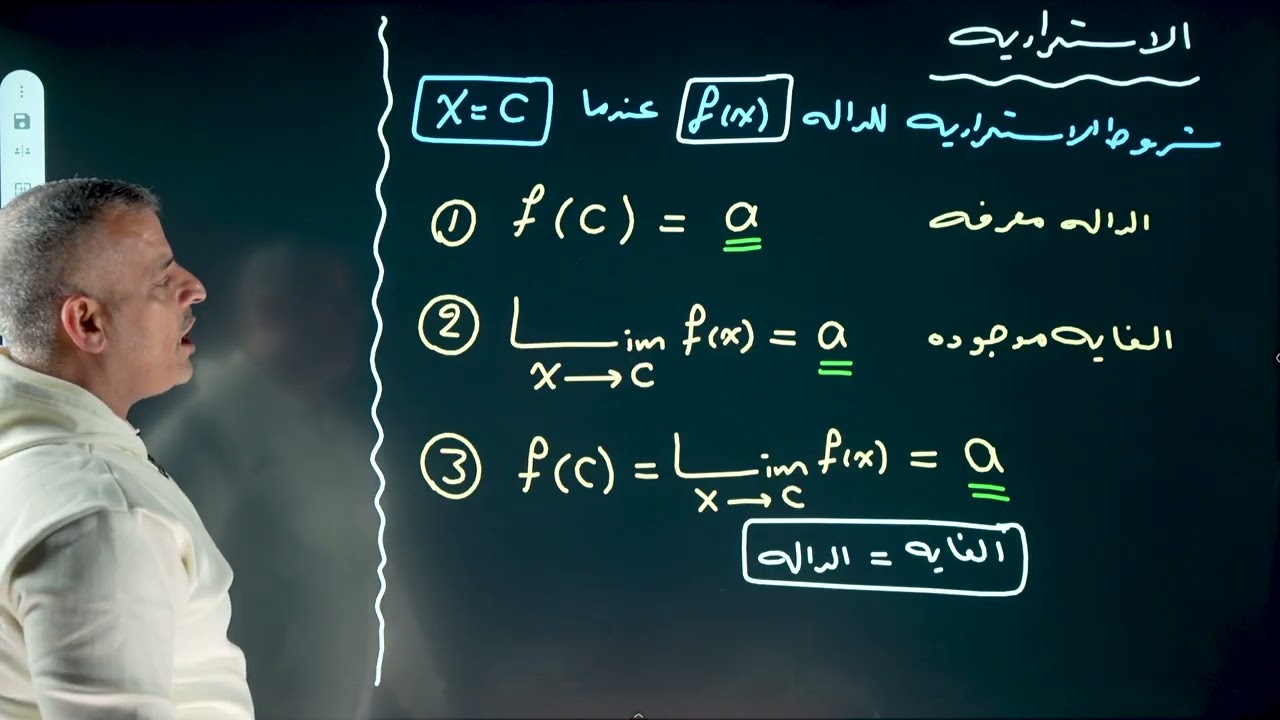 الاستمراريه
شروط الاستمراريه للداله f(x) عندما x = c
① f(c) = a الداله معرفه
② Lim f(x) = a الغايه موجوده
x → c
③ f(c) = Lim f(x) = a
x → c
الغايه = الداله